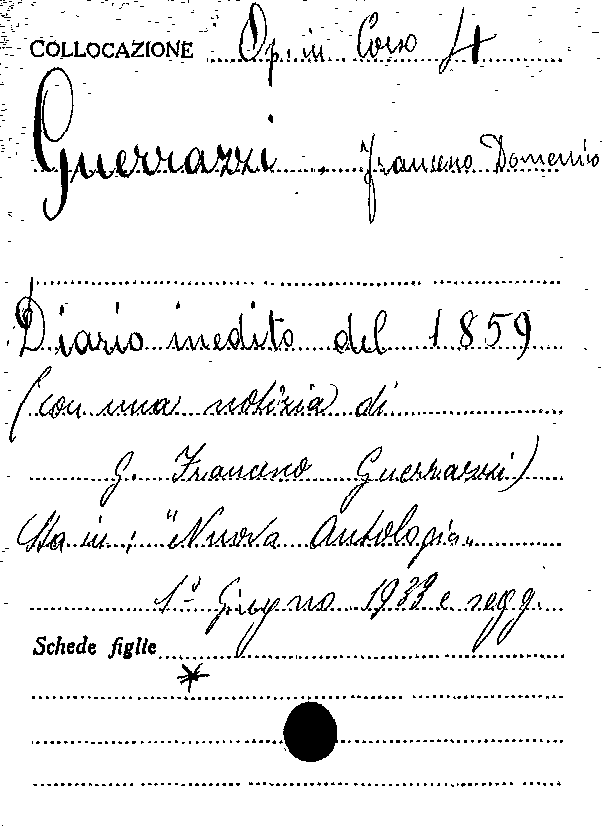 COLLOCAZIONE Op. in Corso 4
Guerrazzi . Francesco Domenico
Diario inedito del 1859
(con una notizia di
G. Francesco Guerrazzi)
Sta in: "Nuova Antologia„
1º Giugno 1933 e segg.
Schede figlie
*